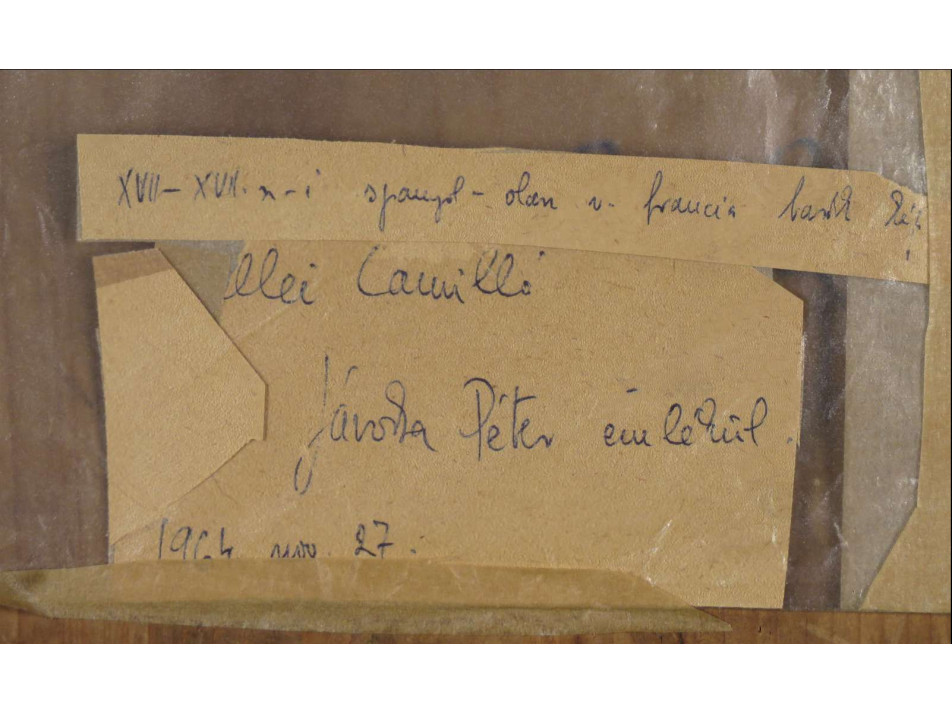 XVII – XVII. sz-i spanyol – olasz v. francia barokk
llei Camilló
Jávorka Péter emlékül.
1964 nov. 27.